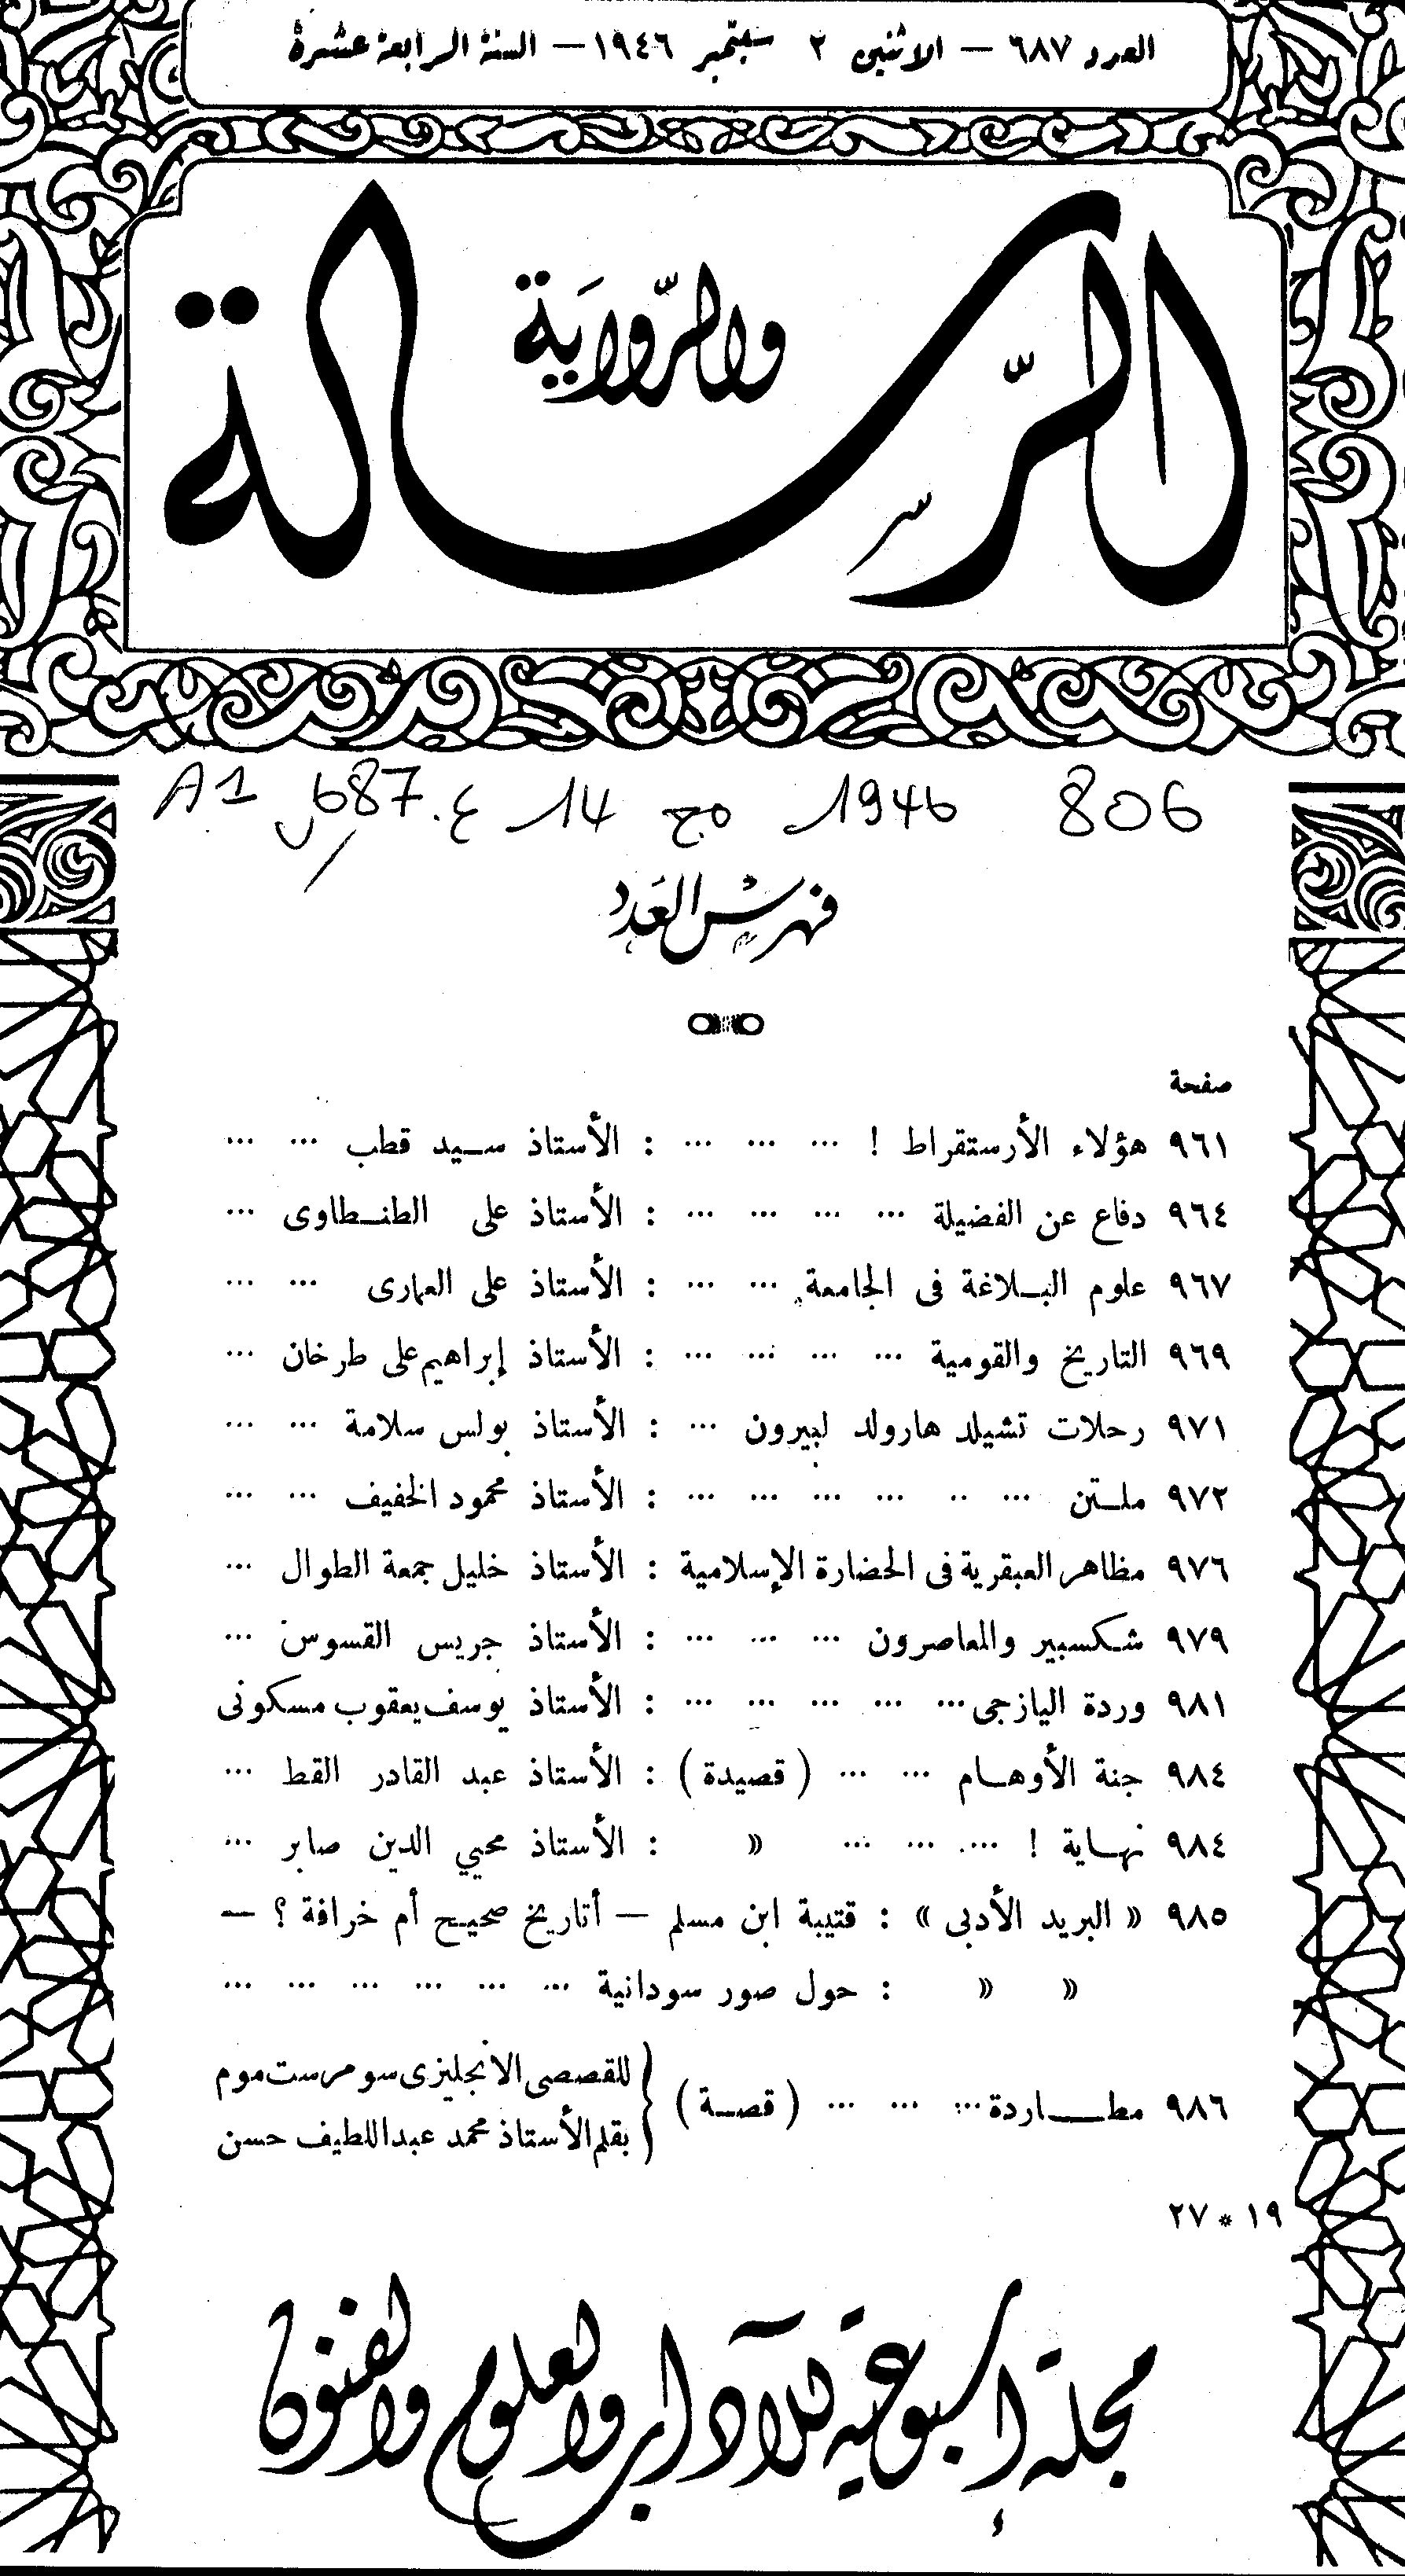 العدد ٦٨٧ — الاثنين ٢ سبتمبر ١٩٤٦ — السنة الرابعة عشرة
الرسالة
والرواية
806 1946 مج 14 ع. 687 A1
فهرس العدد
صفحة
٩٦١ هؤلاء الأرستقراط ! ... ... ... : الأستاذ سيد قطب ... ...
٩٦٤ دفاع عن الفضيلة ... ... ... ... : الأستاذ على الطنطاوى ...
٩٦٧ علوم البلاغة فى الجامعة ... ... : الأستاذ على العمارى ... ...
٩٦٩ التاريخ والقومية ... ... ... ... : الأستاذ إبراهيم على طرخان ...
٩٧١ رحلات تشيلد هارولد لبيرون ... : الأستاذ بولس سلامة ... ...
٩٧٢ ملتن ... .. ... ... ... ... : الأستاذ محمود الخفيف ... ...
٩٧٦ مظاهر العبقرية فى الحضارة الإسلامية : الأستاذ خليل جمعة الطوال ...
٩٧٩ شكسبير والمعاصرون ... ... ... : الأستاذ جريس القسوس ...
٩٨١ وردة اليازجى ... ... ... ... ... : الأستاذ يوسف يعقوب مسكونى
٩٨٤ جنة الأوهام ... ... ( قصيدة ) : الأستاذ عبد القادر القط ...
٩٨٤ نهاية ! ... ... ... » : الأستاذ محيي الدين صابر ...
٩٨٥ « البريد الأدبى » : قتيبة ابن مسلم — أتاريخ صحيح أم خرافة ؟ —
» » : حول صور سودانية ... ... ... ... ... ...
٩٨٦ مطاردة ... ... ... ( قصة ) { للقصصى الانجليزى سومرست موم
بقلم الأستاذ محمد عبد اللطيف حسن
١٩ * ٢٧
مجلة أسبوعية للآداب والعلوم والفنون